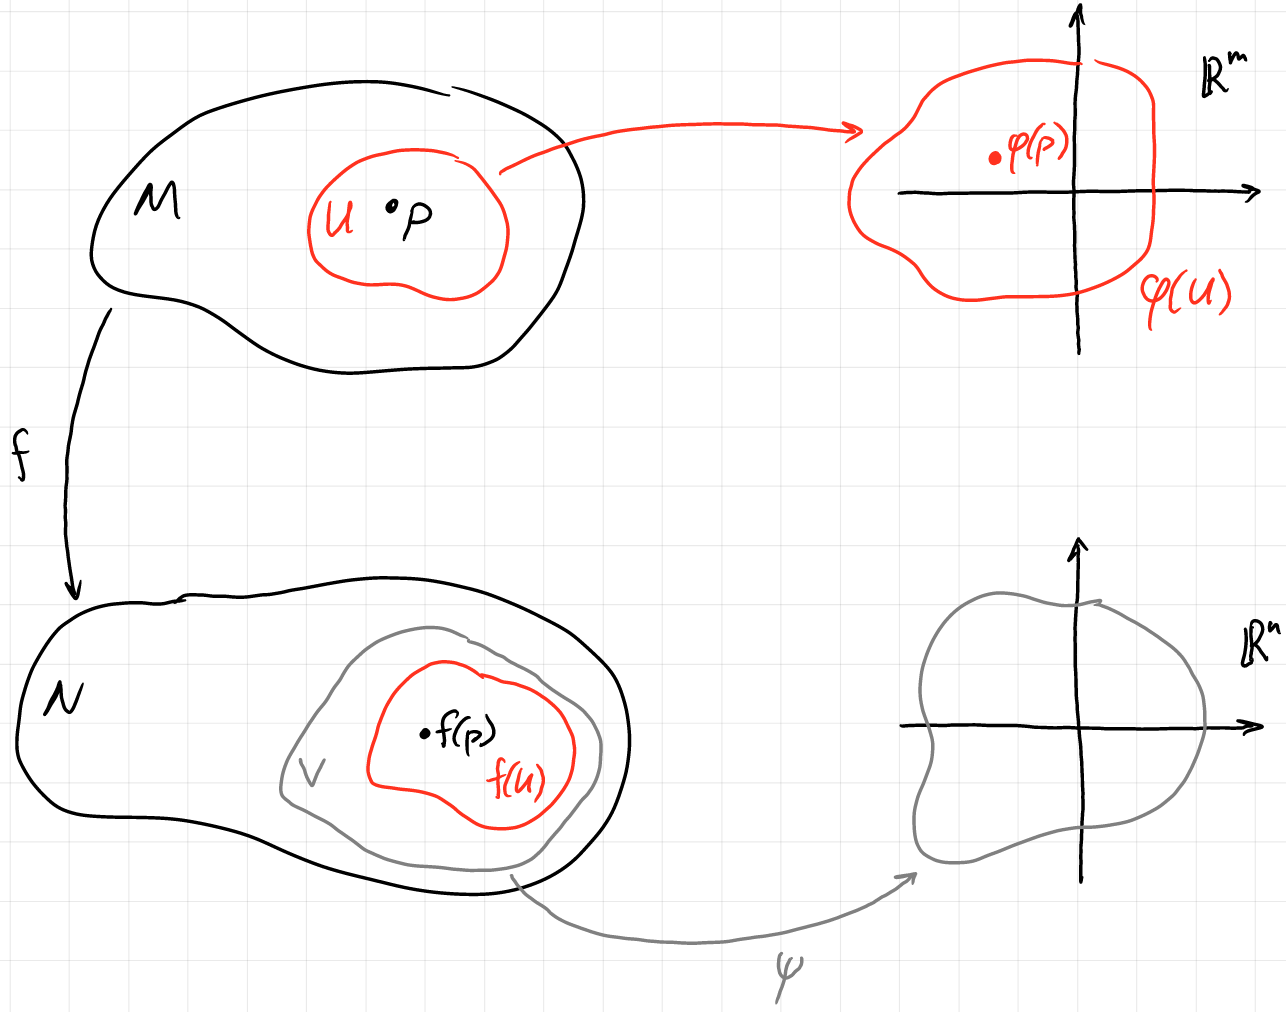 M
U
p
φ(p)
ℝᵐ
φ(U)
f
N
V
f(p)
f(U)
ℝⁿ
ψ